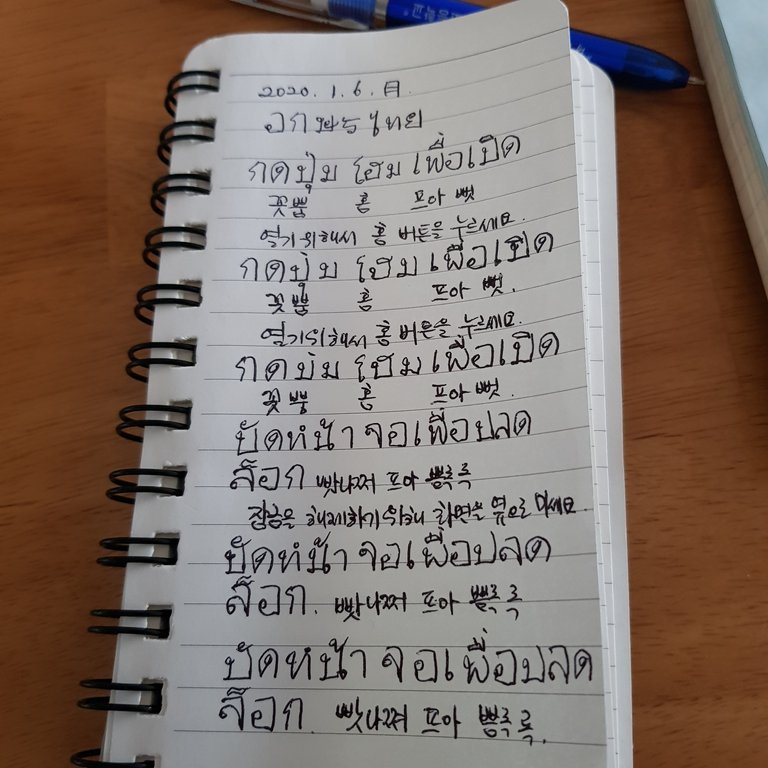 2020. 1. 6. 月.
อกษรไทย
กดปุ่ม โฮม เพื่อเปิด
꼿뿜 홈 프아 뻣
열기 위해서 홈 버튼을 누르세요.
กดปุ่ม โฮม เพื่อเปิด
꼿뿜 홈 프아 뻣.
열기위해서 홈 버튼을 누르세요.
กดปุ่ม โฮม เพื่อเปิด
꼿뿜 홈 프아 뻣.
ปัดหน้าจอเพื่อปลด
ล็อก 빳나쩌 프아 쁠록
잠금을 해제하기위해 화면을 옆으로 미세요.
ปัดหน้าจอเพื่อปลด
ล็อก. 빳나쩌 프아
ปัดหน้าจอเพื่อปลด
ล็อก. 빳나쩌 프아